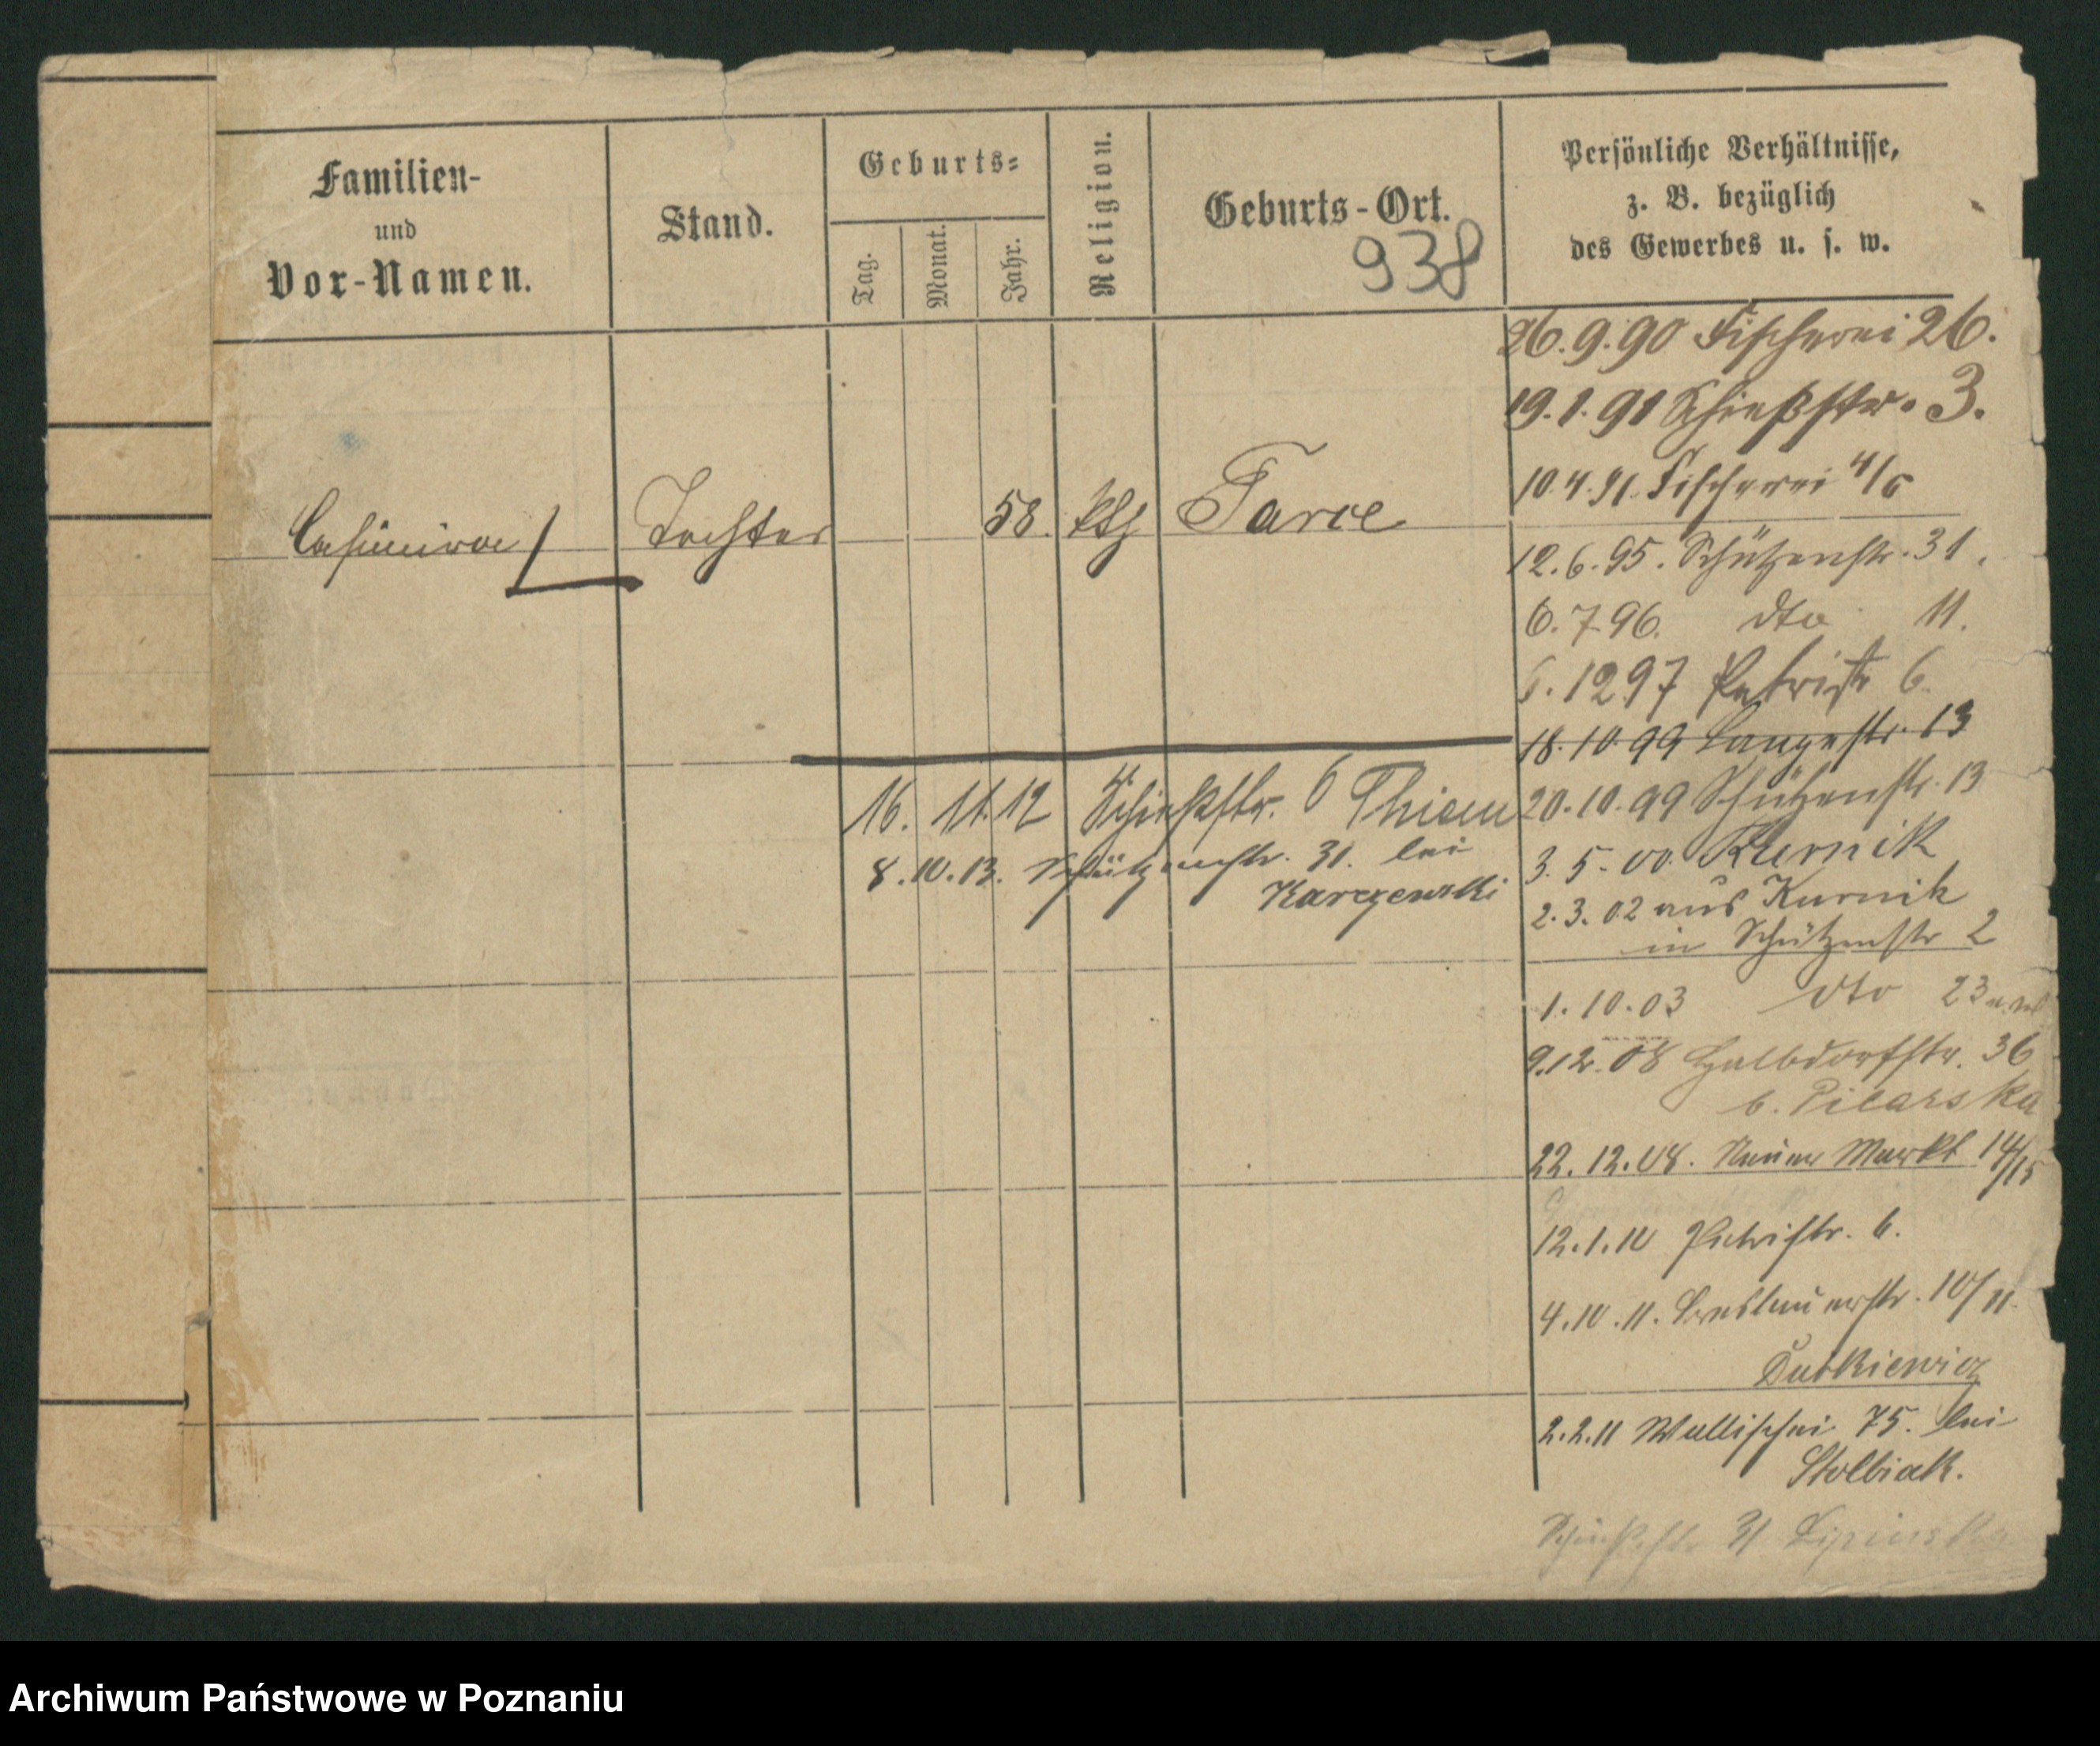 Familien-
und
Vor-Namen.
Stand.
Geburts-
Tag.
Monat.
Jahr.
Religion.
Geburts-Ort.
938
Persönliche Verhältnisse,
z. B. bezüglich
des Gewerbes u. s. w.
Casimira
Tochter
58.
kth
Tarce
26.9.90 Fischerei 26.
19.1.91 Schießstr. 3.
10.4.91. Fischerei 4/5
12.6.95. Schützenstr. 31.
6.7.96. dto 11.
6.12 97 Petristr 6.
18.10.99 Langestr. 13
20.10.99 Schützenstr. 13
3.5.00. Kurnik
2.3.02 aus Kurnik
in Schützenstr 2
1.10.03 dto 23
9.12.08 Halbdorfstr. 36
b. Pilarska
22.12.08. Neuer Markt 14/15
12.1.10 Petristr. 6.
4.10.11. Breslauerstr. 10/11.
Dutkiewicz
2.2.11 Wallischei 75. bei
Stolbiak.
Schießstr. 31 Lipinska
16.11.12 Schießstr. 6 Thisen
8.10.13. Schützenstr. 31. bei
Karczewski
Archiwum Państwowe w Poznaniu